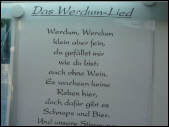 Das Werdum-Lied
Werdum, Werdum
klein aber fein,
du gefällst mir
wie du bist:
auch ohne Wein.
Es wachsen keine
Reben hier,
doch dafür gibt es
Schnaps und Bier.
Und unsere